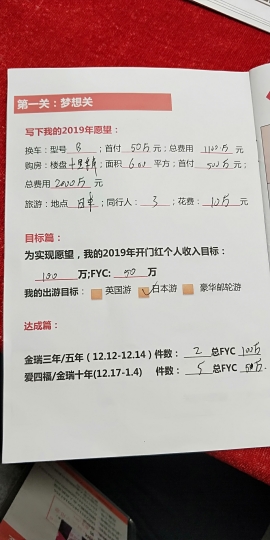 第一关：梦想关
写下我的2019年愿望：
换车：型号 8 ；首付 50万 元；总费用 1100万 元
购房：楼盘 ；面积 600 平方；首付 500万 元；
总费用 2000万 元
旅游：地点 日本 ；同行人： 3 ；花费： 10万 元
目标篇：
为实现愿望，我的2019年开门红个人收入目标：
100 万;FYC: 50 万
我的出游目标： 英国游 日本游 豪华邮轮游
达成篇：
金瑞三年/五年（12.12-12.14）件数： 2 总FYC 100万
爱四福/金瑞十年(12.17-1.4) 件数： 5 总FYC